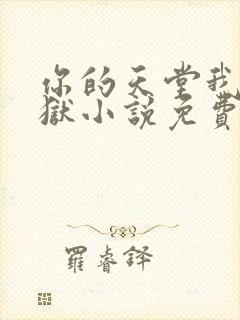 你的天堂我
獄小說免費
羅睿鐸